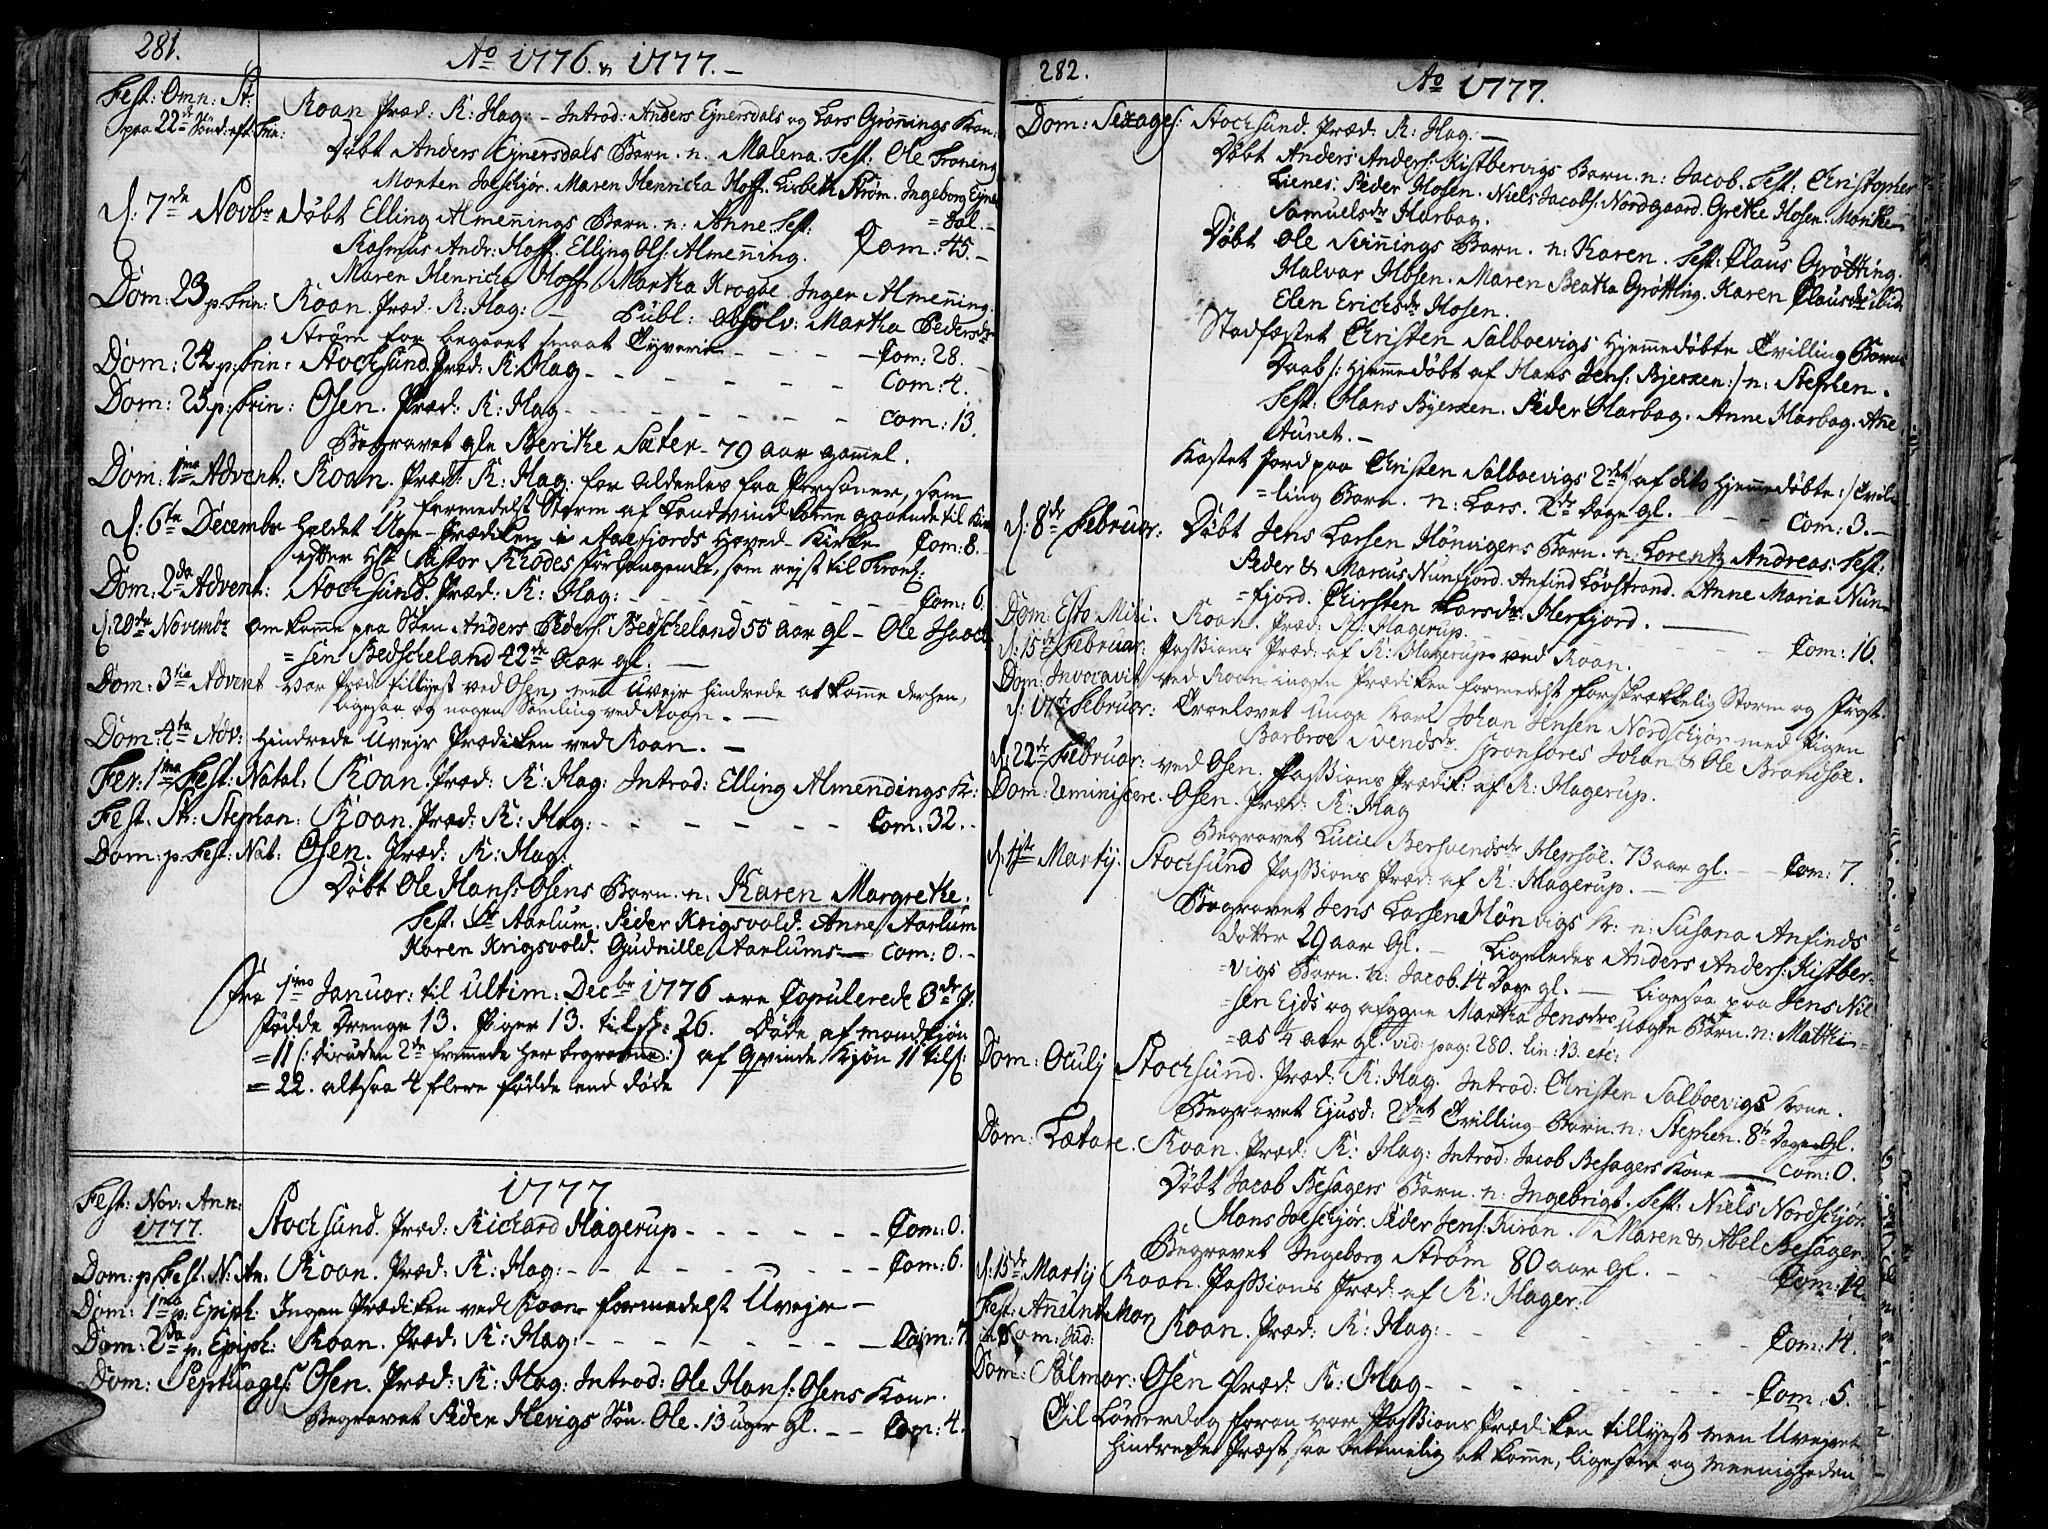 281.
Ao 1776. & 1777. –
Fest: Omn: St: Roan Præd: R: Hag: – Introd: Anders Ejnersdals og Lars Grønnings Kon:
paa 22de Sønd: eft: Trin:
Døbt Anders Ejnersdals Barn. n. Malena. Test: Ole Troning
Morten Joeschjør. Maren Henricha Hoff. Lisbeth Strøm. Ingeborg Ejners
=dal. –
d: 7de Novbr Døbt Elling Almennings Barn. n: Anne. Test:
Rasmus Andr: Hoff. Elling Ols: Almenning. Com: 45. –
Maren Henricha Hoff. Martha Krogøe. Inger Almenning.
Dom: 23 p: Trin: Roan. Præd: R: Hag: – Publ: Absolv: Martha Pedersdr
Strøm for begaaet smaat Tyverie – – – – Com: 28.
Dom: 24 p: Trin: Stochsund. Præd: R: Hag – – – – – – Com: 4.
Dom: 25 p: Trin: Osen. Præd: R: Hag – – – – – – Com: 13.
Begravet gle Berithe Sæter – 79 aar gammel.
Dom: 1ma Advent: Roan. Præd: R: Hag: for aldeeles faa Persóner, som
formedelst Storm af Landvind kom̄e gaaende til Kir
d: 6te Decembr holdet Uge-Prædiken i Aaefjords Hoved-Kirke Com: 8. –
efter Hr Pastor Rhodes Forlangende, som rejst til Tronh:
Dom: 2da Advent: Stochsund. Præd: R: Hag: – – – – – – Com: 6.
d: 20de Novembr omkom̄e paa Søen Anders Peders: Bedscheland 55 aar gl – Ole Isaach
=sen Bedscheland 42de aar gl. –
Dom: 3tia Advent var Præd: tillyst ved Osen, men Uvejr hindrede at kom̄e derhen,
ligesaa og nogen Samling ved Roan. –
Dom: 4ta Adv: hindrede Uvejr Prædiken ved Roan. –
Fer: 1ma Fest: Natal: Roan. Præd: R: Hag: Introd: Elling Almendings K:
Fest: St: Stephan: Roan. Præd: R: Hag: – – – – – – Com: 32. –
Dom: p. Fest: Nat: Osen. Præd: R: Hag:
Døbt Ole Hans: Osens Barn. n. Karen Margrethe.
Test: Aarlum. Peder Krigsvold. Anne Aarlum
Karen Krigsvold. Gudnille Aarlums – Com: 0. –
Fra 1mo Januar: til Ultim: Decbr 1776 ere Copulerede 3de P:
Fødde Drenge 13. Piger 13. tils: = 26. Døde af mandkjøn
= 11 (: desuden 2de fremmede her begravne :) af Qvinde Kjøn 11 tils:
= 22. altsaa 4 flere fødde end døde
1777
Fest: Nov: Ann:
1777. Stochsund. Præd: Richard Hagerup – – – – – – Com: 0.
Dom: p. Fest: N: An. Roan. Præd: R: Hag: – – – – – – Com: 6.
Dom: 1ma p. Epiph. Ingen Prædiken ved Roan formedelst Uvejr –
Dom: 2da p. Epiph: Roan. Præd: R: Hag: – – – – – – Com: 7.
Dom: Septuages: Osen. Præd: R: Hag: Introd: Ole Hans: Osens Kone.
Begravet Peder Hevigs Søn. Ole. 13 uger gl. – – Com: 4.
282.
Ao 1777.
Dom: Sexages: Stochsund. Præd: R: Hag: –
Døbt Anders Anders: Kistbervigs Barn. n: Jacob. Test: Christopher
Lienes. Peder Hosen. Niels Jacobs: Nordgaard. Grethe Hosen. Marithe
Samuelsdr Harbag.
Døbt Ole Svinnings Barn. n: Karen. Test: Claus Grøtting.
Halvar Ibsen. Maren Beatha Grøtting. Karen Clausdr ibid.
Elen Erichsdr Hosen.
Stadfæstet Christen Salboevigs hjemmedøbte Tvilling Barns
Daab /: hjemmedøbt af Hans Jens: Bjerxen :/ n: Stephen.
Test: Hans Bjerxen. Peder Harbag. Anne Harbag. Anne
Aunet. –
Kastet Jord paa Christen Salboevigs 2det /: af dito hjemmedøbte :/ Tvil
=ling Barn. n: Lars. 2de Dage gl. – – – Com: 3. –
d: 8de Februar: Døbt Jens Larsen Hønvigens Barn. n: Lorentz Andreas: Test:
Peder & Marcus Nunfjord. Anfind Løvstrand. Anne Maria Nun=
=fjord. Chirsten Larsdr Herfjord. –
Dom: Esto Mihi. Roan. Præd: R: Hagerup. – – – – – Com: 16.
d: 15de Februar: Passions Præd: af R: Hagerup ved Roan.
Dom: Invocavit ved Roan ingen Prædiken formedelst forskrækkelig Storm og Frost.
d: 17de Februar: Troelovet Unge Karl Johan Jensen Nordschjør med Pigen
Barbroe Svendsdr. Sponsores Johan & Ole Brandsøe.
d: 22de Februar: ved Osen. Passions Prædik: af R: Hagerup.
Dom: Reminiscere. Osen. Præd: R: Hag
Begravet Lucie Bersvendsdr Hepsøe. 73 aar gl. – – Com: 7.
d: 1ste Martij. Stochsund Passions Præd: af R: Hagerup. –
Begravet Jens Larsen Hønvigs K: n: Susana Anfinds
dotter 29 aar gl. – Ligeledes Anders Anders: Kistber=
=vigs Barn. n: Jacob. 14 Dage gl. – Ligesaa paa Jens Nil
=sen Ejds og afggne Martha Jensdrs uægte Barn. n: Matthi=
=as 4 aar gl. vid: pag: 280. lin: 13. etc:
Dom: Oculj Stochsund. Præd: R: Hag. Introd: Christen Salboevigs Kone.
Begravet Ejusd: 2det Tvilling-Barn. n: Stephen. 8te Dage gl.
Dom: Lætare. Roan. Præd: R: Hag: Introd: Jacob Besagers Kone – Com: 0.
Døbt Jacob Besagers Barn. n: Ingebrigt. Test: Niels Nordschjør
Hans Joeschjør. Peder Jens: Kiran. Maren & Abel Besager.
Begravet Ingeborg Strøm 80 aar gl. – – Com: 14.
d: 15de Martij Roan. Passions Præd: af R: Hager:
Fest: Anunt: Mar
Roan. Præd: R: Hag: – – – – – Com: 14.
Dom: Palmar: Osen Præd: R: Hag – – – – – Com: 5.
Til Løverdag foran var Passions Prædiken tillyst men Uvejret
hindrede Præst saa betimelig at kom̄e, ligesom og Meenigheden